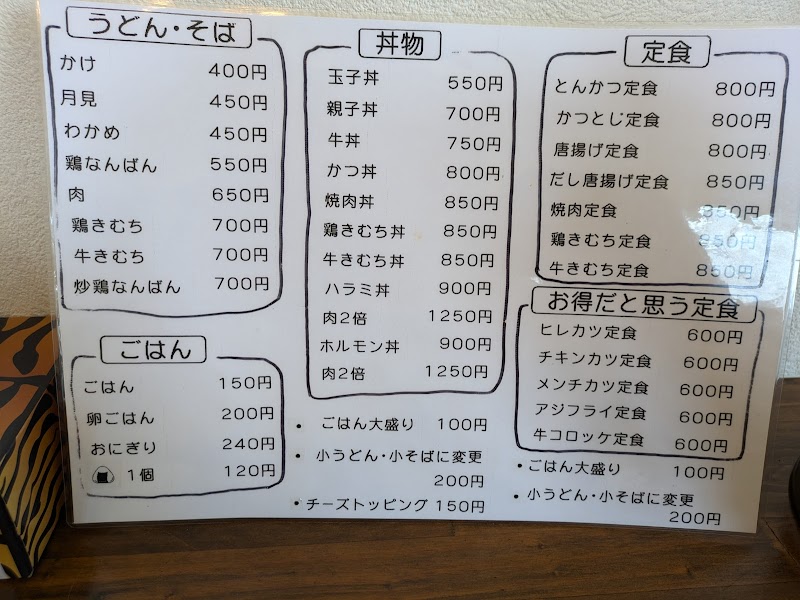 うどん・そば
かけ 400円
月見 450円
わかめ 450円
鶏なんばん 550円
肉 650円
鶏きむち 700円
牛きむち 700円
炒鶏なんばん 700円
ごはん
ごはん 150円
卵ごはん 200円
おにぎり 240円
1個 120円
丼物
玉子丼 550円
親子丼 700円
牛丼 750円
かつ丼 800円
焼肉丼 850円
鶏きむち丼 850円
牛きむち丼 850円
ハラミ丼 900円
肉2倍 1250円
ホルモン丼 900円
肉2倍 1250円
• ごはん大盛り 100円
• 小うどん・小そばに変更
200円
• チーズトッピング 150円
定食
とんかつ定食 800円
かつとじ定食 800円
唐揚げ定食 800円
だし唐揚げ定食 850円
焼肉定食 850円
鶏きむち定食 850円
牛きむち定食 850円
お得だと思う定食
ヒレカツ定食 600円
チキンカツ定食 600円
メンチカツ定食 600円
アジフライ定食 600円
牛コロッケ定食 600円
• ごはん大盛り 100円
• 小うどん・小そばに変更
200円